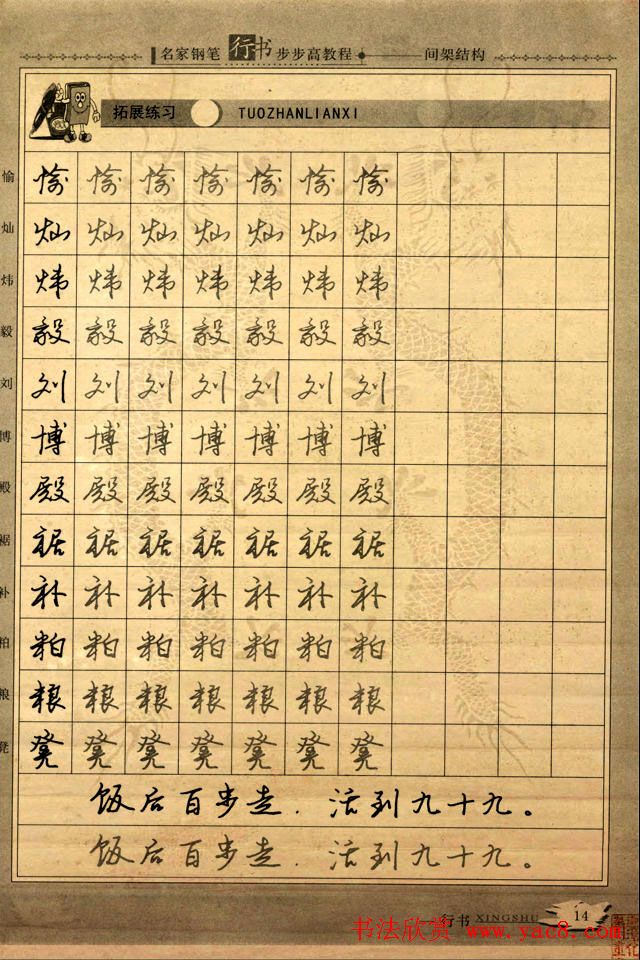 名家钢笔行书步步高教程 间架结构
拓展练习 TUOZHANLIANXI
愉 愉 愉 愉 愉 愉 愉 愉
灿 灿 灿 灿 灿 灿 灿 灿
炜 炜 炜 炜 炜 炜 炜 炜
毅 毅 毅 毅 毅 毅 毅 毅
刘 刘 刘 刘 刘 刘 刘 刘
博 博 博 博 博 博 博 博
殿 殿 殿 殿 殿 殿 殿 殿
裾 裾 裾 裾 裾 裾 裾 裾
补 补 补 补 补 补 补 补
粕 粕 粕 粕 粕 粕 粕 粕
粮 粮 粮 粮 粮 粮 粮 粮
凳 凳 凳 凳 凳 凳 凳 凳
饭后百步走.活到九十九。
饭后百步走.活到九十九。
行书 XINGSHU 14
书法欣赏 www.yac8.com